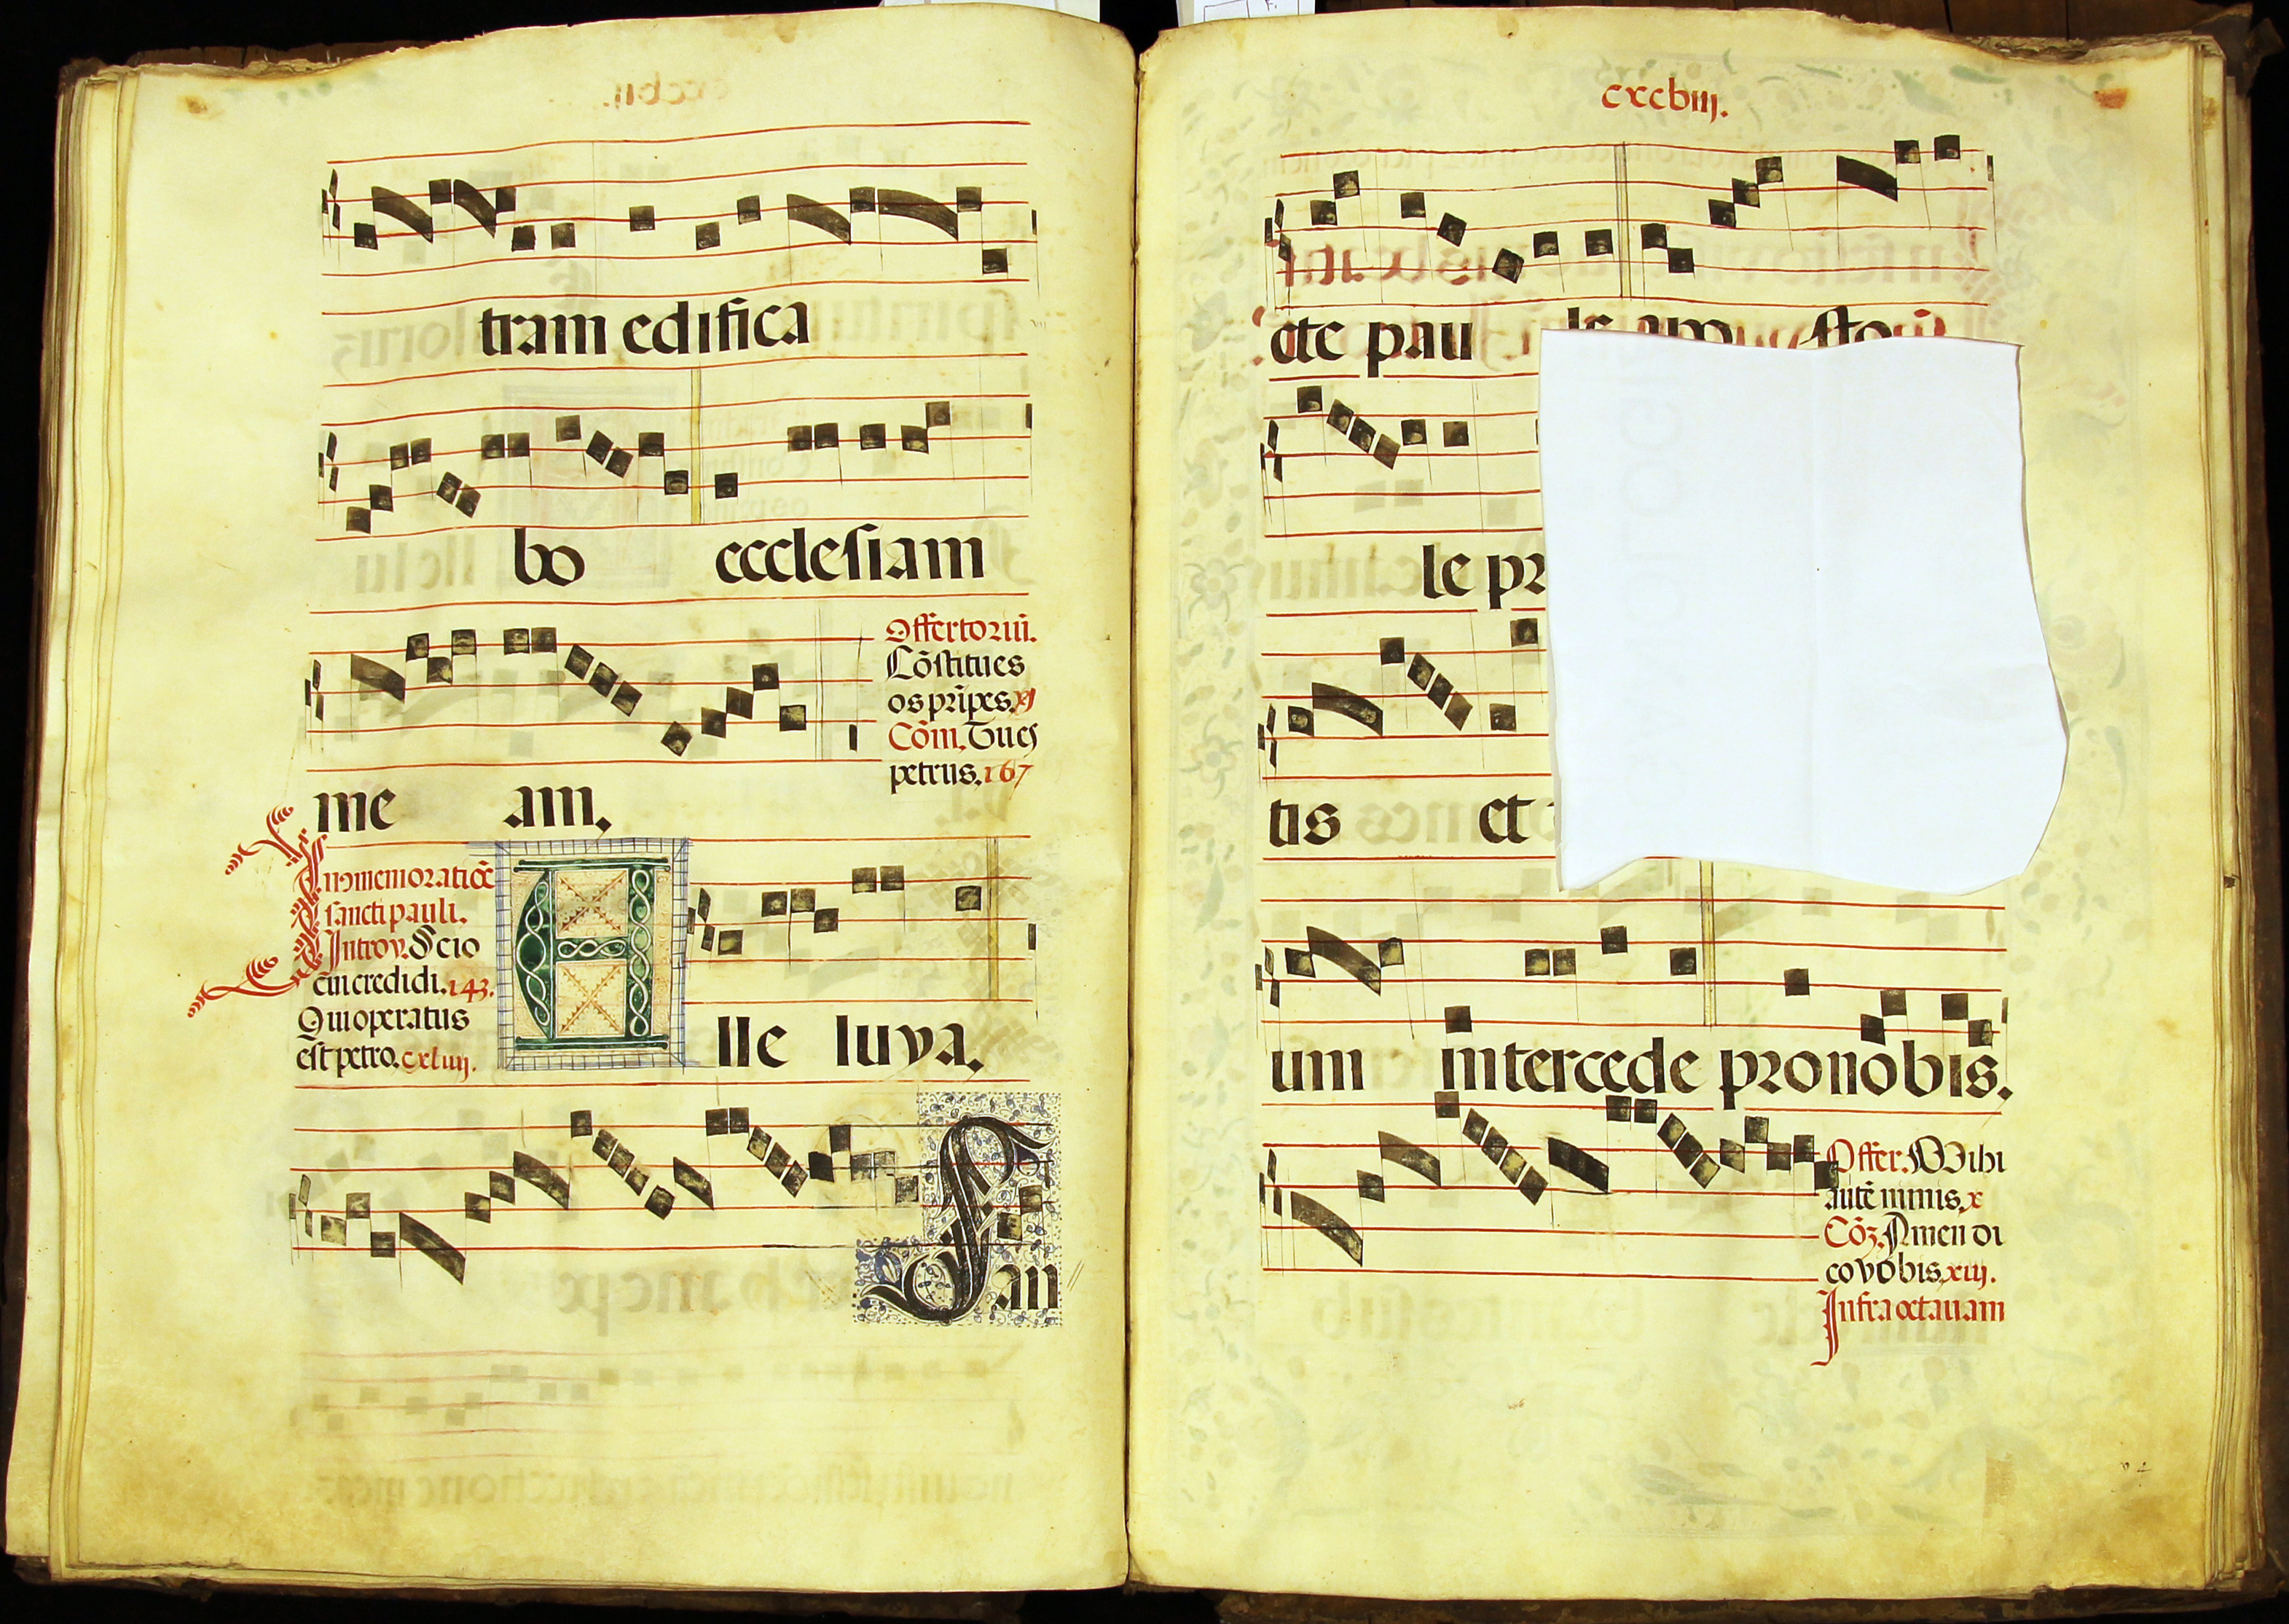 tram edifica
bo ecclesiam
Offertoriū.
Cōstitues
os prīpes. xj
Cōm. Tu es
petrus. 167
me am.
In cōmemoratiōe
sancti pauli.
Introy. Scio
cui credidi. 143.
Qui operatus
est petro. cxliiij.
A lle luya.
San
cxcbiij.
cte pau le apo sto
le pr
tis et
um intercede pro nobis.
Offer. Mihi
autē nimis. x
Cōz. Amen di
co vobis. xiij.
Infra octauam